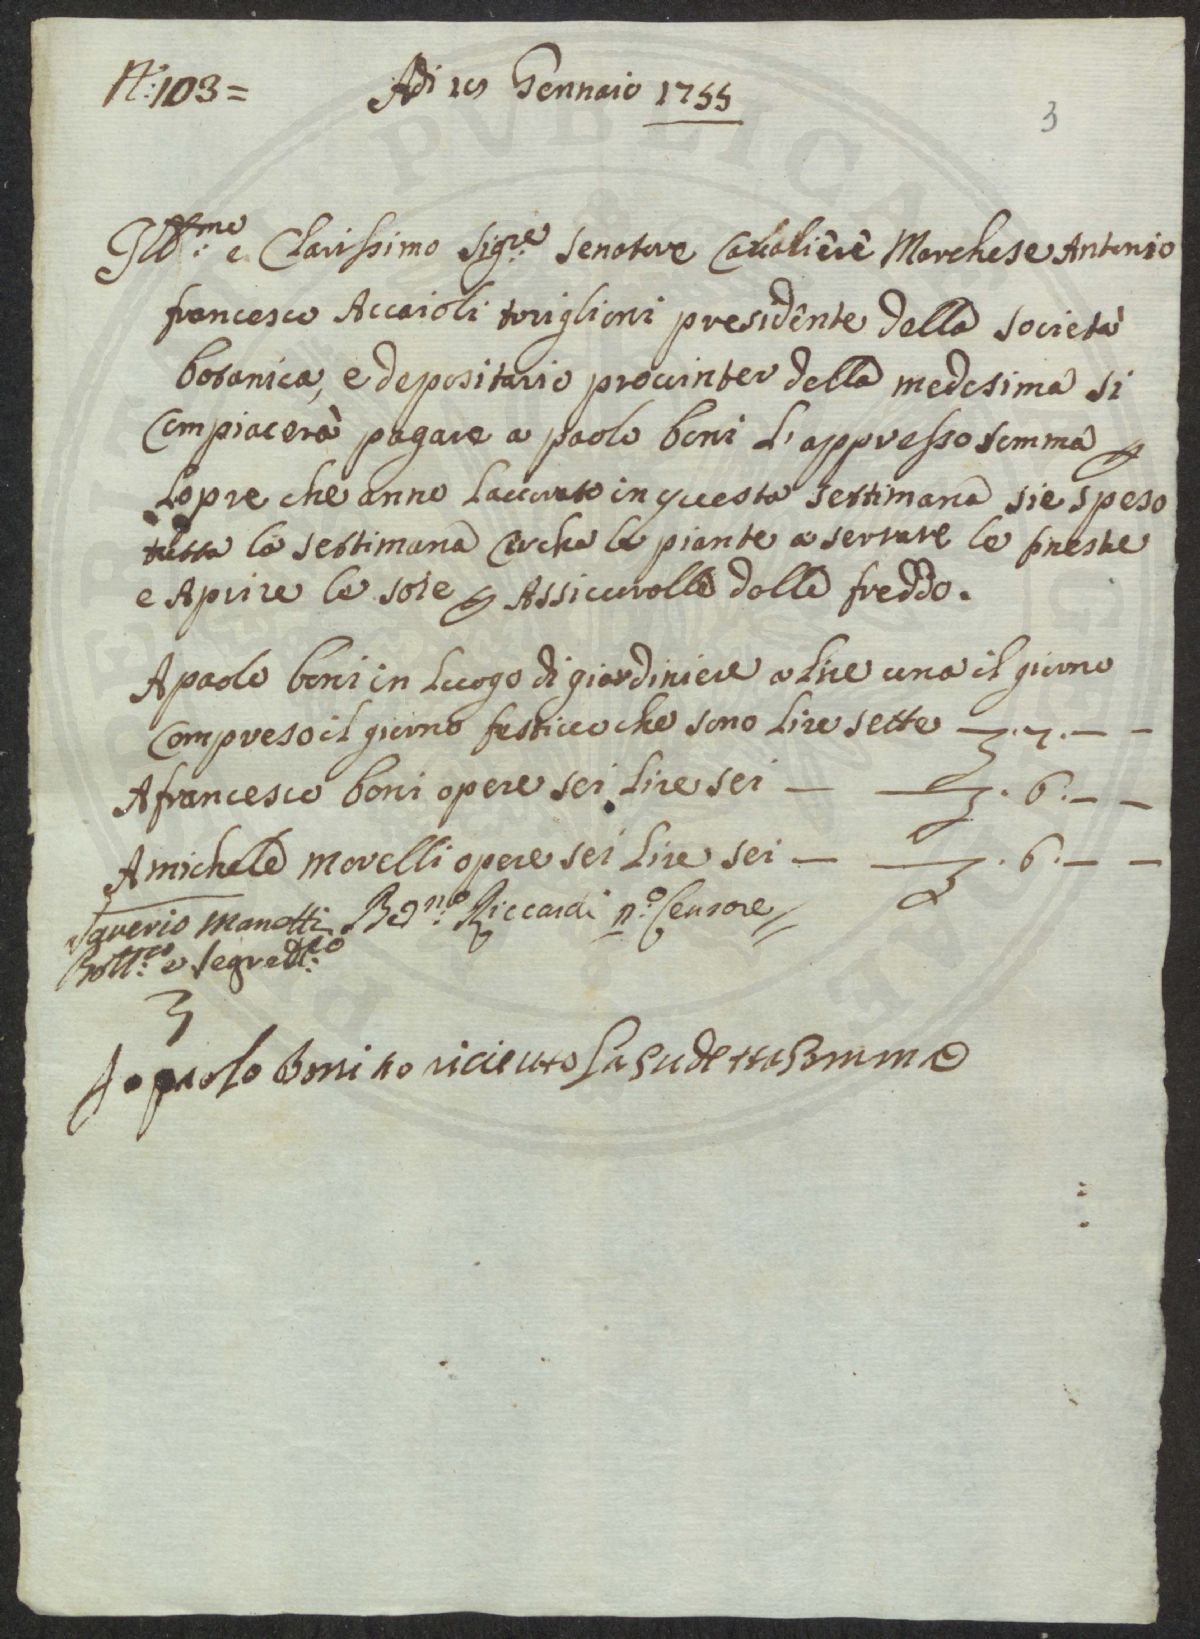 N.º: 103 =
Adi 19 Gennaio 1755
3
Ill.mo e Clarissimo Sig.re Senatore Cavaliere Marchese Antonio
francesco Accaioli toriglioni presidente della società
botanica, e depositario prointer della medesima si
Compiacerà pagare a paolo boni L'appresso somma p
Lopre che anno Lavorato in questa settimana sie speso
tutta la settimana circha le piante a serrare le finestre
e Aprire le sole p Assicurolle dalle freddo.
A paolo boni in Luogo di giardiniere a Lire una il giorno
Compreso il giorno festivo che sono Lire sette — 7. — —
A francesco boni opere sei Lire sei — 6. — —
A michele morelli opere sei Lire sei — 6. — —
Saverio Manetti Bern.no Riccardi n.o Censore
Bott.co e Segret.rio
Io paolo Boni ho riceuto La Sudetta Somma